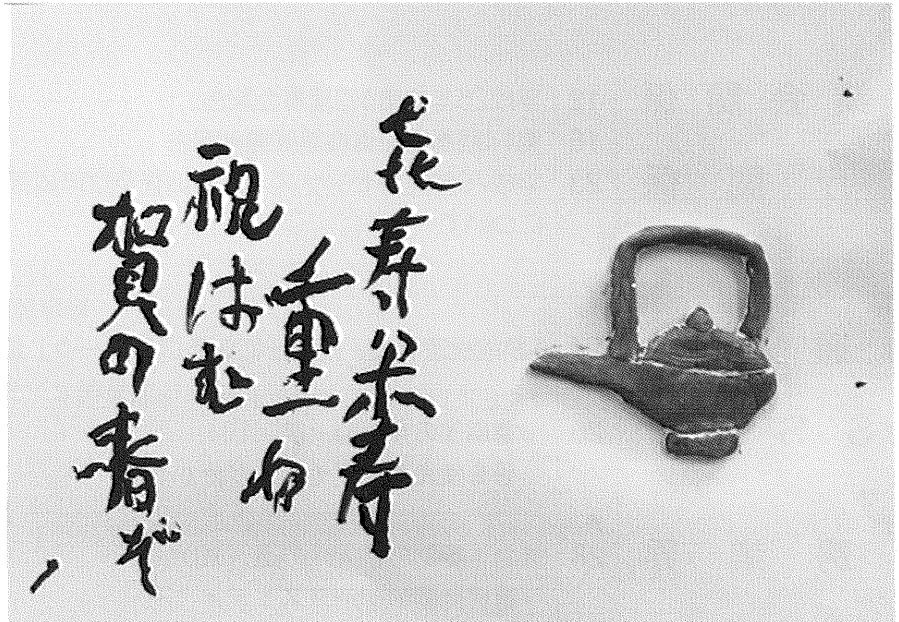 㐂寿米寿
重ね
祝はむ
賀の春ぞ